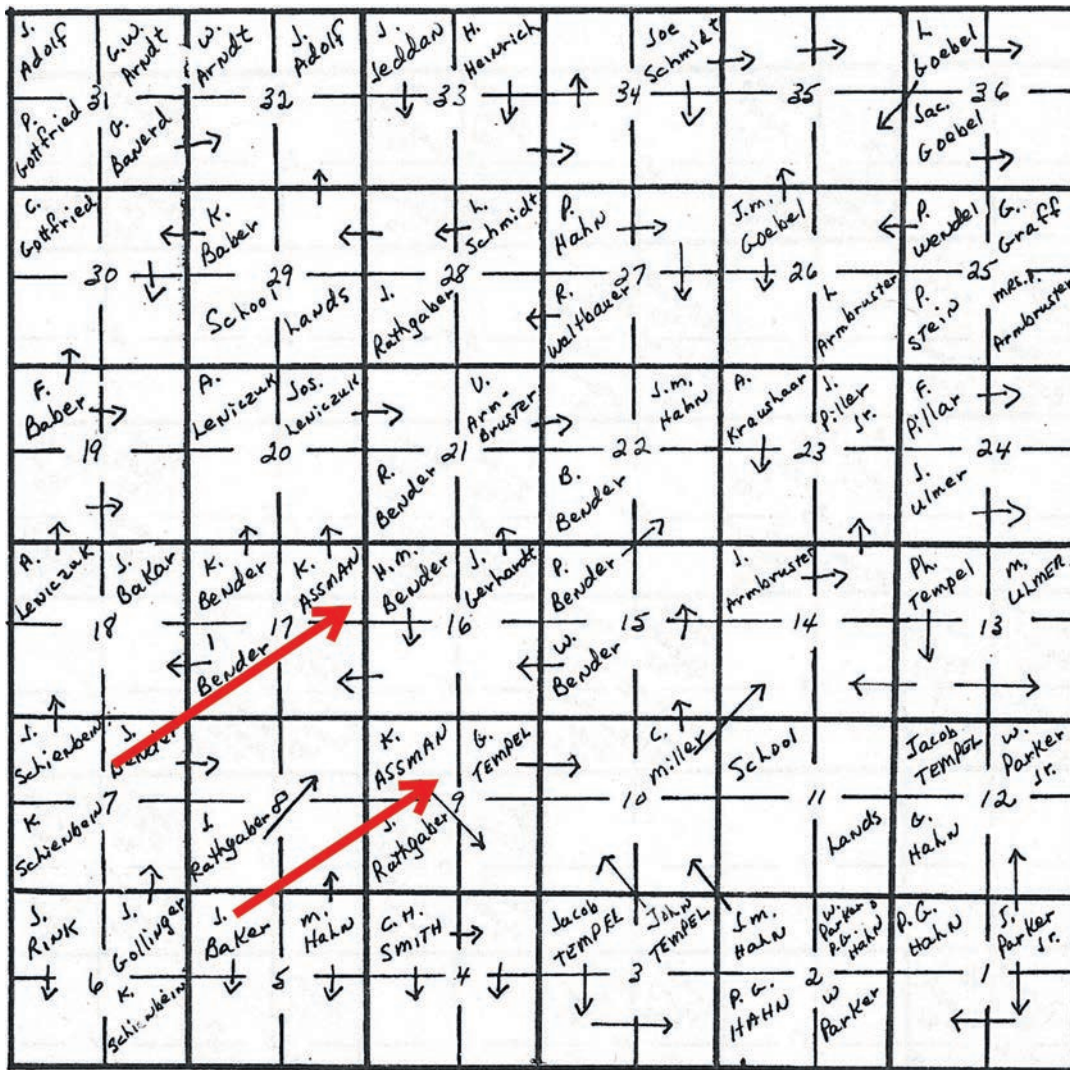 J. Adolf
G.W. Arndt
W. Arndt
J. Adolf
J. Jeddan
H. Heinrich
Joe Schmidt
L. Goebel
31
32
33
34
35
36
P. Gottfried
G. Banerd
Jac. Goebel
C. Gottfried
K. Baber
L. Schmidt
P. Hahn
J.M. Goebel
P. Wendel
G. Graff
30
29
28
27
26
25
School Lands
J. Rathgaber
R. Waltbauer
L. Armbruster
P. Stein
Mrs. P. Armbruster
F. Baber
A. Lewiczuk
Jos. Lewiczuk
V. Arm-
bruster
J.M. Hahn
A. Kraushaar
J. Piller Jr.
F. Pillar
19
20
21
22
23
24
R. Bender
B. Bender
J. Ulmer
A. Lewiczuk
J. Bakar
K. Bender
K. ASSMAN
H.M. Bender
J. Gerhardt
P. Bender
J. Armbruster
Ph. Tempel
M. ULMER
18
17
16
15
14
13
Bender
W. Bender
J. Schienbein
J. Bender
K. ASSMAN
G. TEMPEL
C. Miller
School
Jacob TEMPEL
W. Parker Jr.
7
8
9
10
11
12
K. Schienbein
J. Rathgaber
J. Rathgaber
Lands
G. Hahn
J. RINK
J. Gollinger
J. Baker
M. Hahn
C.H. SMITH
Jacob TEMPEL
John TEMPEL
J.M. Hahn
W. Parker &
P.G. HAHN
P.G. Hahn
J. Parker Jr.
6
5
4
3
2
1
K. Schienbein
P.G. HAHN
W Parker